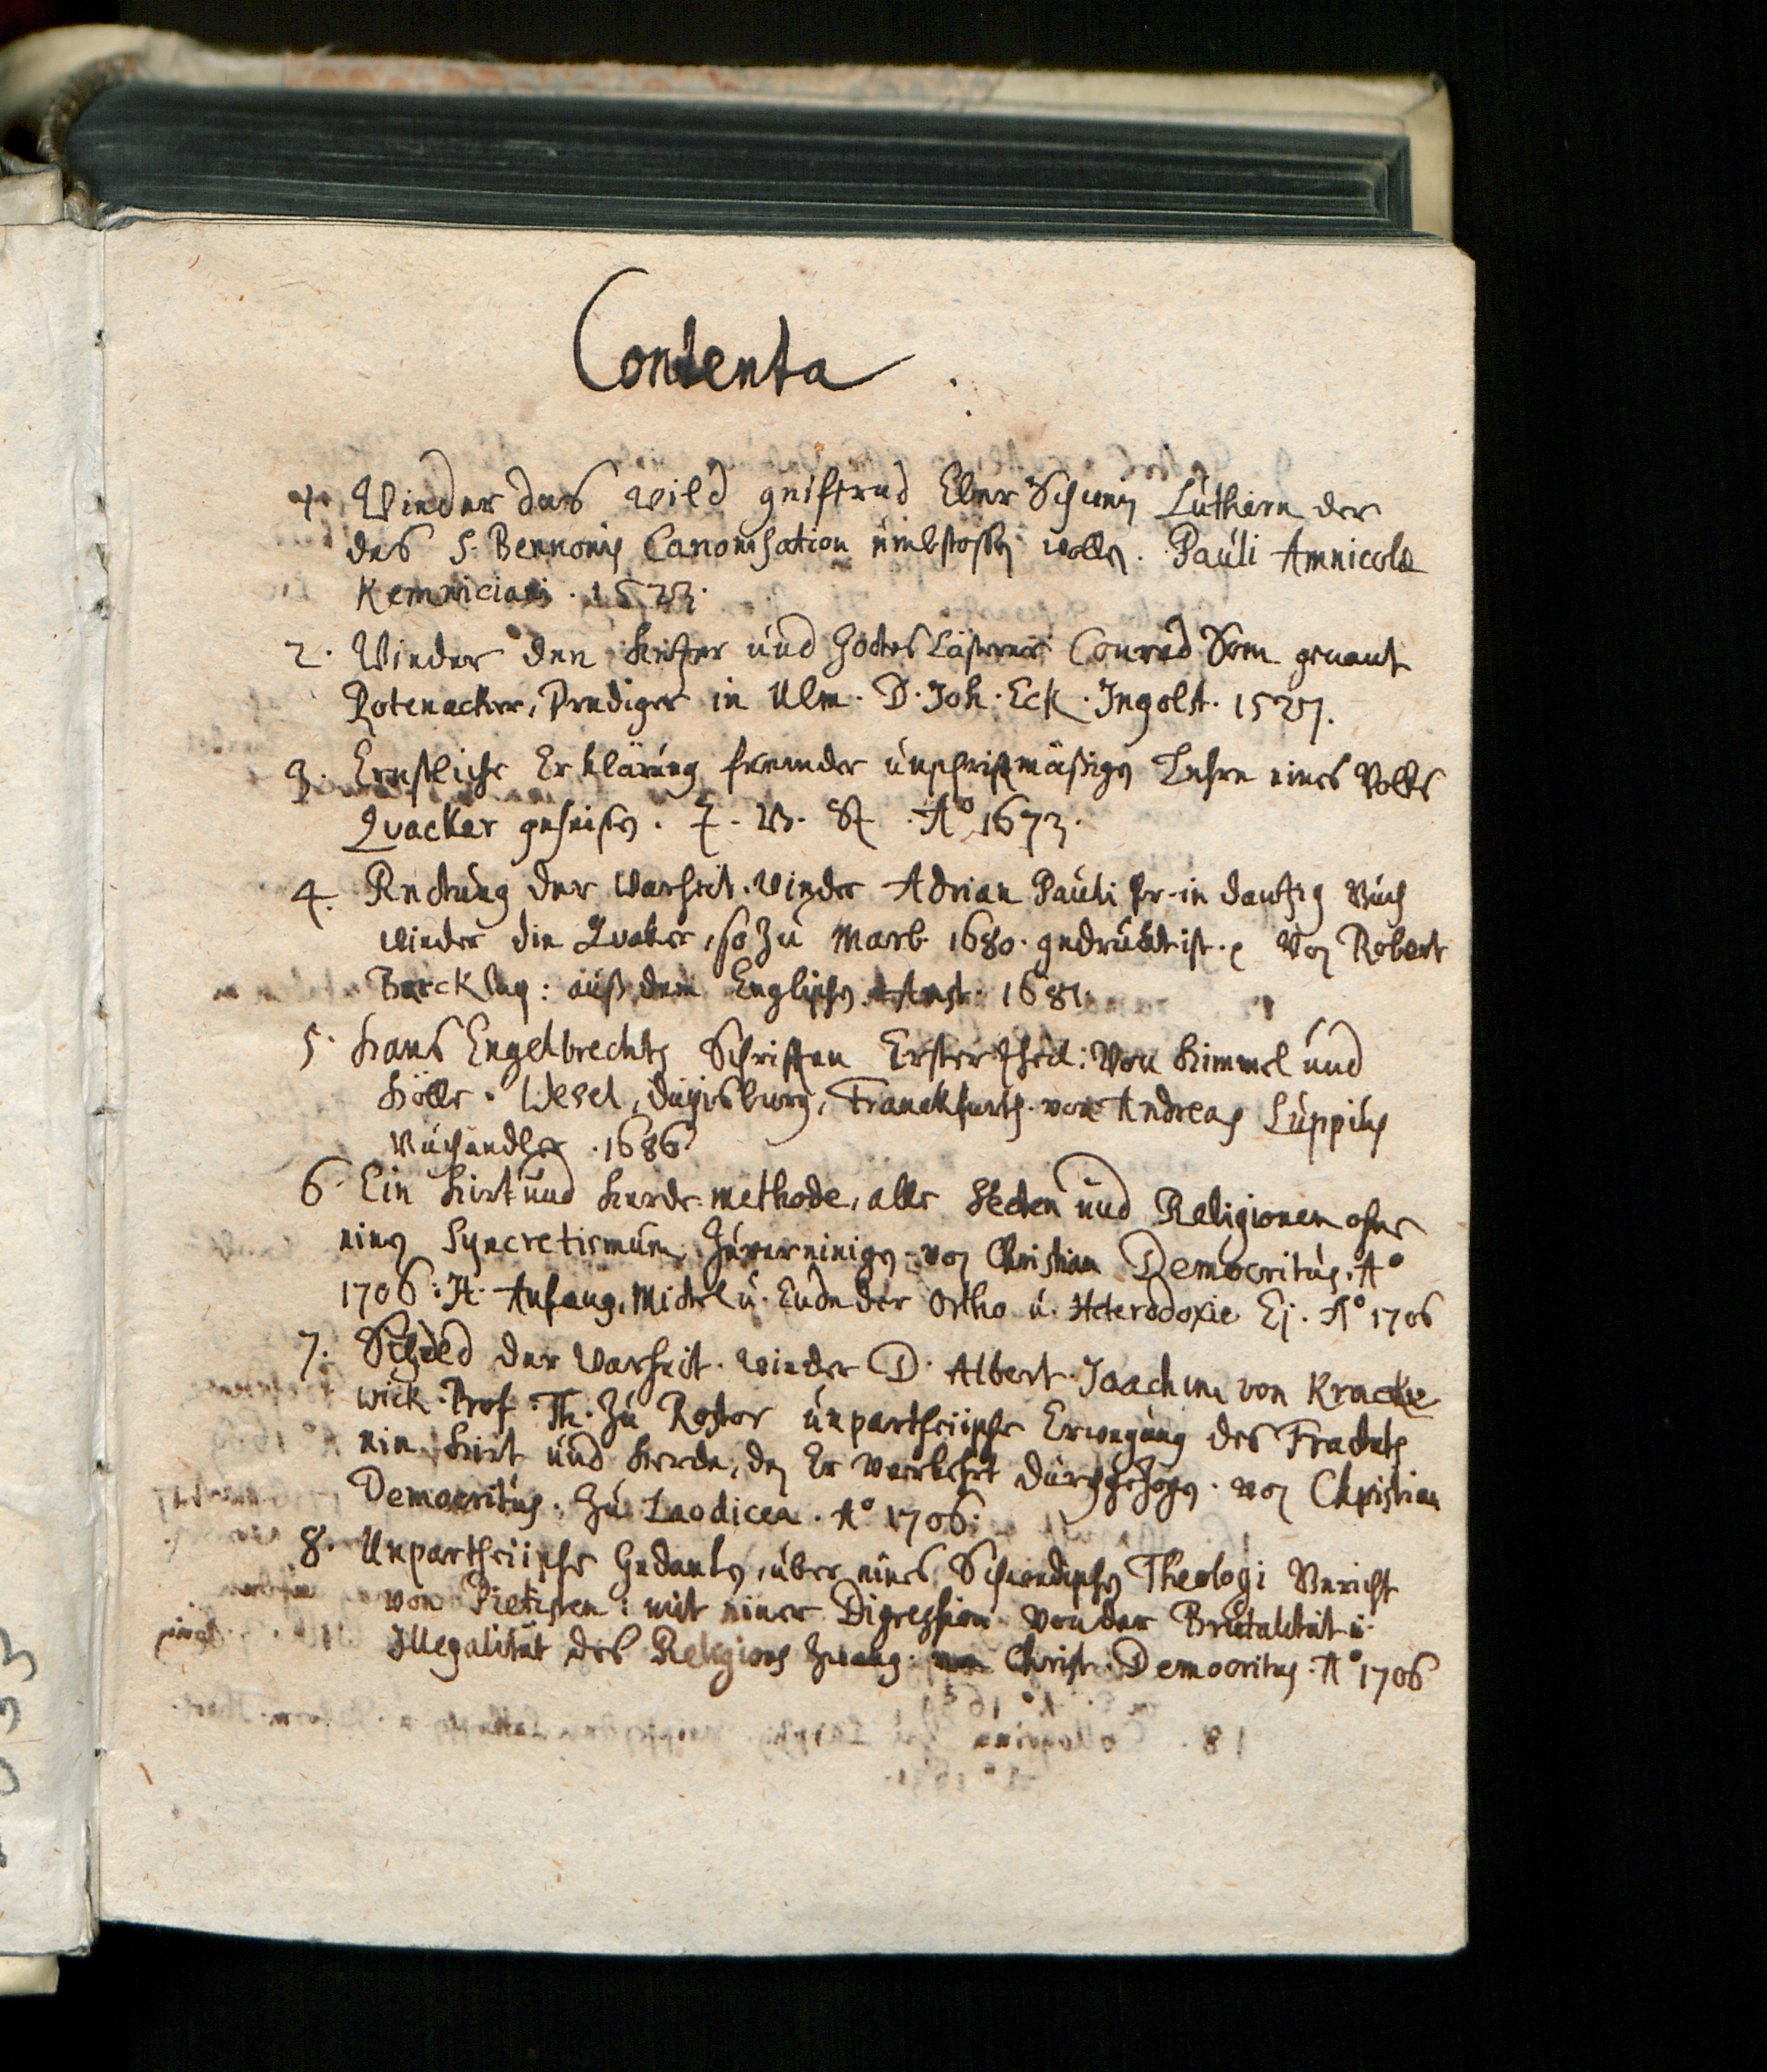 Contenta
1. Wieder das wild geifernd Eber Schwein Luthern der
das S. Bennonis Canonisation umbstossen wollen. Pauli Amnicola
Kemniciani. 1523.
2. Wieder den Ketzer und Gottes Lästerer Conrad Som genant
Rotenacker, Prediger in Ulm. D. Joh. Eck. Ingolst. 1527.
3. Ernstliche Erklärung fremder unschriftmäßigen Lehre eines Volks
Quacker geheißen. A° 1673.
4. Rettung der Warheit. wieder Adrian Pauli Pr. in Dantzig Buch
wieder die Quaker, so zu Marb. 1680. gedruckt ist. Von Robert
Barcklay: auß dem Englischen. Amst. 1681.
5. Hans Engelbrechts Schriften Erster theil: Von Himmel und
Hölle. Wesel, Duyisburg, Franckfurth. von Andreas Luppius
Buchändler. 1686.
6. Ein Hirt und Herde. methode, alle Secten und Religionen ohne
einen Syncretismum, zuvereinigen. von Christian Democritus. A°
1706: It. Anfang, Mittel u. Ende der Ortho u. Heterodoxie Ej. A° 1706
7. Schild der Warheit. wieder D. Albert Joachim von Kracke
wick. Prof. Th. zu Rostoc unpartheiische Erwegung des Tractats
ein Hirt und Herde, den Er verkehrt durchgezogen. von Christian
Democritus. zu Laodicea. A° 1706.
8. Unpartheiische Gedanken, über eines Schwedischen Theologi Bericht
von Pietisten: mit einer Digression von der Brutalität u.
Illegalität des Religions Zwang. Christ. Democritus. A° 1706